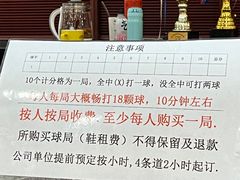 注意事项
1 2 3 4 5 6 7 8 9 10 总分
10个计分格为一局，全中(X)打一球，没全中可打两球
每人每局大概畅打18颗球，10分钟左右
按人按局收费 至少每人购买一局.
所购买球局（鞋租费）不得保留及退款
公司单位提前预定按小时，4条道2小时起订.